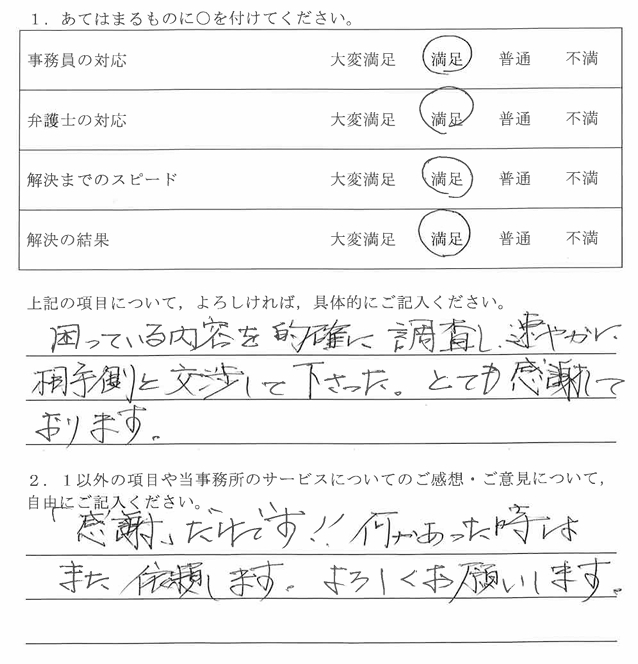 １．あてはまるものに○を付けてください。
事務員の対応 大変満足 満足 普通 不満
弁護士の対応 大変満足 満足 普通 不満
解決までのスピード 大変満足 満足 普通 不満
解決の結果 大変満足 満足 普通 不満
上記の項目について，よろしければ，具体的にご記入ください。
困っている内容を的確に調査し、速やかに、
相手側と交渉して下さった。とても感謝して
おります。
２．１以外の項目や当事務所のサービスについてのご感想・ご意見について，
自由にご記入ください。
「感謝」だけです!! 何かあった時は
また依頼します。よろしくお願いします。